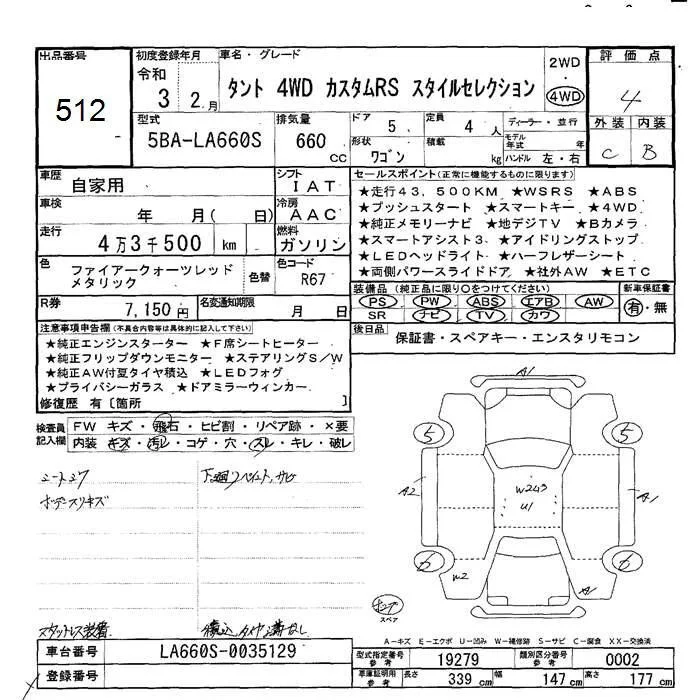 出品番号
512
初度登録年月
令和
3 2.月
車名・グレード
タント 4WD カスタムRS スタイルセレクション
2WD
・
4WD
評価点
4
型式
5BA-LA660S
排気量
660
CC
ドア
5
定員
4
人
ディーラー・並行
外装 内装
C B
形状
ワゴン
積載
kg
モデル年式
年
ハンドル 左・右
車歴
自家用
シフト
IAT
セールスポイント(正常に機能するものに限ります)
車検
年 月( 日)
冷房
AAC
走行
4万3千500 km
燃料
ガソリン
★走行43,500KM ★WSRS ★ABS
★プッシュスタート ★スマートキー ★4WD
★純正メモリーナビ ★地デジTV ★Bカメラ
★スマートアシスト3 ★アイドリングストップ
★LEDヘッドライト ★ハーフレザーシート
★両側パワースライドドア ★社外AW ★ETC
色
ファイアークォーツレッド
メタリック
色替
色コード
R67
R券
7,150円
名変通知期限
月 日
装備品 (純正品に限り○をつけてください)
PS PW ABS エアB AW
SR ナビ TV カワ
新車保証書
有・無
注意事項申告欄(不具合内容等は具体的に記入して下さい)
★純正エンジンスターター ★F席シートヒーター
★純正フリップダウンモニター ★ステアリングS/W
★純正AW付夏タイヤ積込 ★LEDフォグ
★プライバシーガラス ★ドアミラーウィンカー
修復歴 有 [箇所 ]
後日品
保証書・スペアキー・エンスタリモコン
検査員
記入欄
FW キズ・飛石・ヒビ割・リペア跡・×要
内装 キズ・汚レ・コゲ・穴・スレ・キレ・破レ
シートシワ
ボデースリキズ
下廻リペイント,サビ
スタットレス装着
積込タイヤ溝なし
A1
5
5
A2
W2U3
U1
A1
6
6
W2
A1
スペア
A-キズ E-エクボ U-凹み W-補修跡 S-サビ C-腐食 XX-交換済
車台番号
LA660S-0035129
登録番号
型式指定番号
参考
19279
類別区分番号
参考
0002
車庫証明用
参考
長さ
339 cm
幅
147 cm
高さ
177 cm